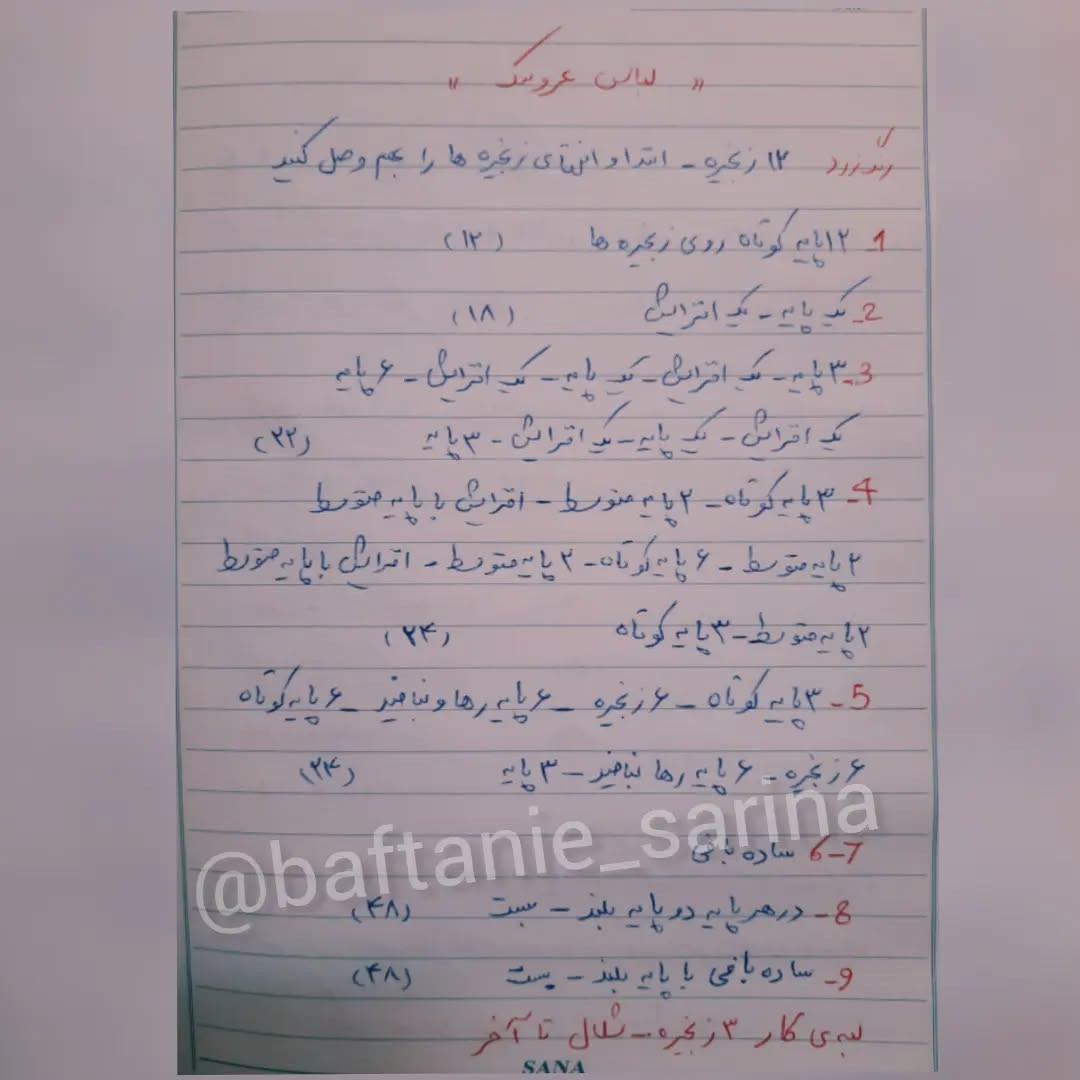 " لباس عروسک "
رنگ زرد ۱۲ زنجیره - ابتدا و انتهای زنجیره ها را بهم وصل کنید
1_ ۱۲ پایه کوتاه روی زنجیره ها (۱۲)
2_ یک پایه - یک افزایش (۱۸)
3_ ۳ پایه - یک افزایش - یک پایه - یک افزایش - ۶ پایه
یک افزایش - یک پایه - یک افزایش - ۳ پایه (۲۲)
4_ ۳ پایه کوتاه - ۲ پایه متوسط - افزایش با پایه متوسط
۲ پایه متوسط - ۶ پایه کوتاه - ۲ پایه متوسط - افزایش با پایه متوسط
۲ پایه متوسط - ۳ پایه کوتاه (۲۴)
5_ ۳ پایه کوتاه - ۶ زنجیره - ۶ پایه رها و نبافید - ۶ پایه کوتاه
۶ زنجیره - ۶ پایه رها نبافید - ۳ پایه (۲۴)
6_7 ساده بافی
8_ در هر پایه دو پایه بلند - بست (۴۸)
9_ ساده بافی با پایه بلند - بست (۴۸)
لبه ی کار ۳ زنجیره - شلال تا آخر
SANA
@baftanie_sarina